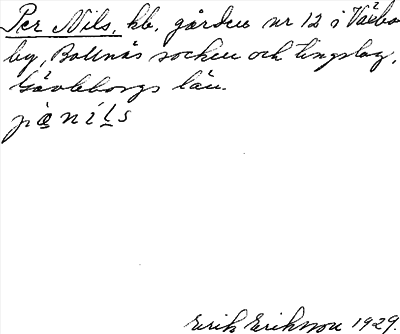 Per Nils, kb. gården nr 12 i Växbo
by, Bollnäs socken och tingslag,
Gävleborgs län.
Erik Eriksson 1929.